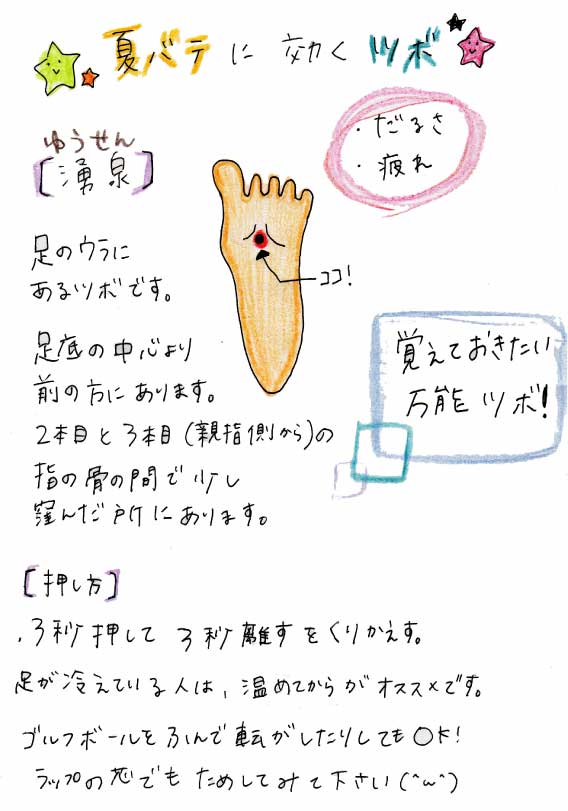 夏バテに効くツボ
・だるさ
・疲れ
ゆうせん
[湧泉]
ココ!
足のウラに
あるツボです。
足底の中心より
前の方にあります。
2本目と3本目(親指側から)の
指の骨の間で少し
窪んだ所にあります。
覚えておきたい
万能ツボ!
[押し方]
・3秒押して 3秒離すをくりかえす。
足が冷えている人は、温めてからがオススメです。
ゴルフボールをふんで転がしたりしても○K!
ラップの芯でもためしてみて下さい(^ω^)